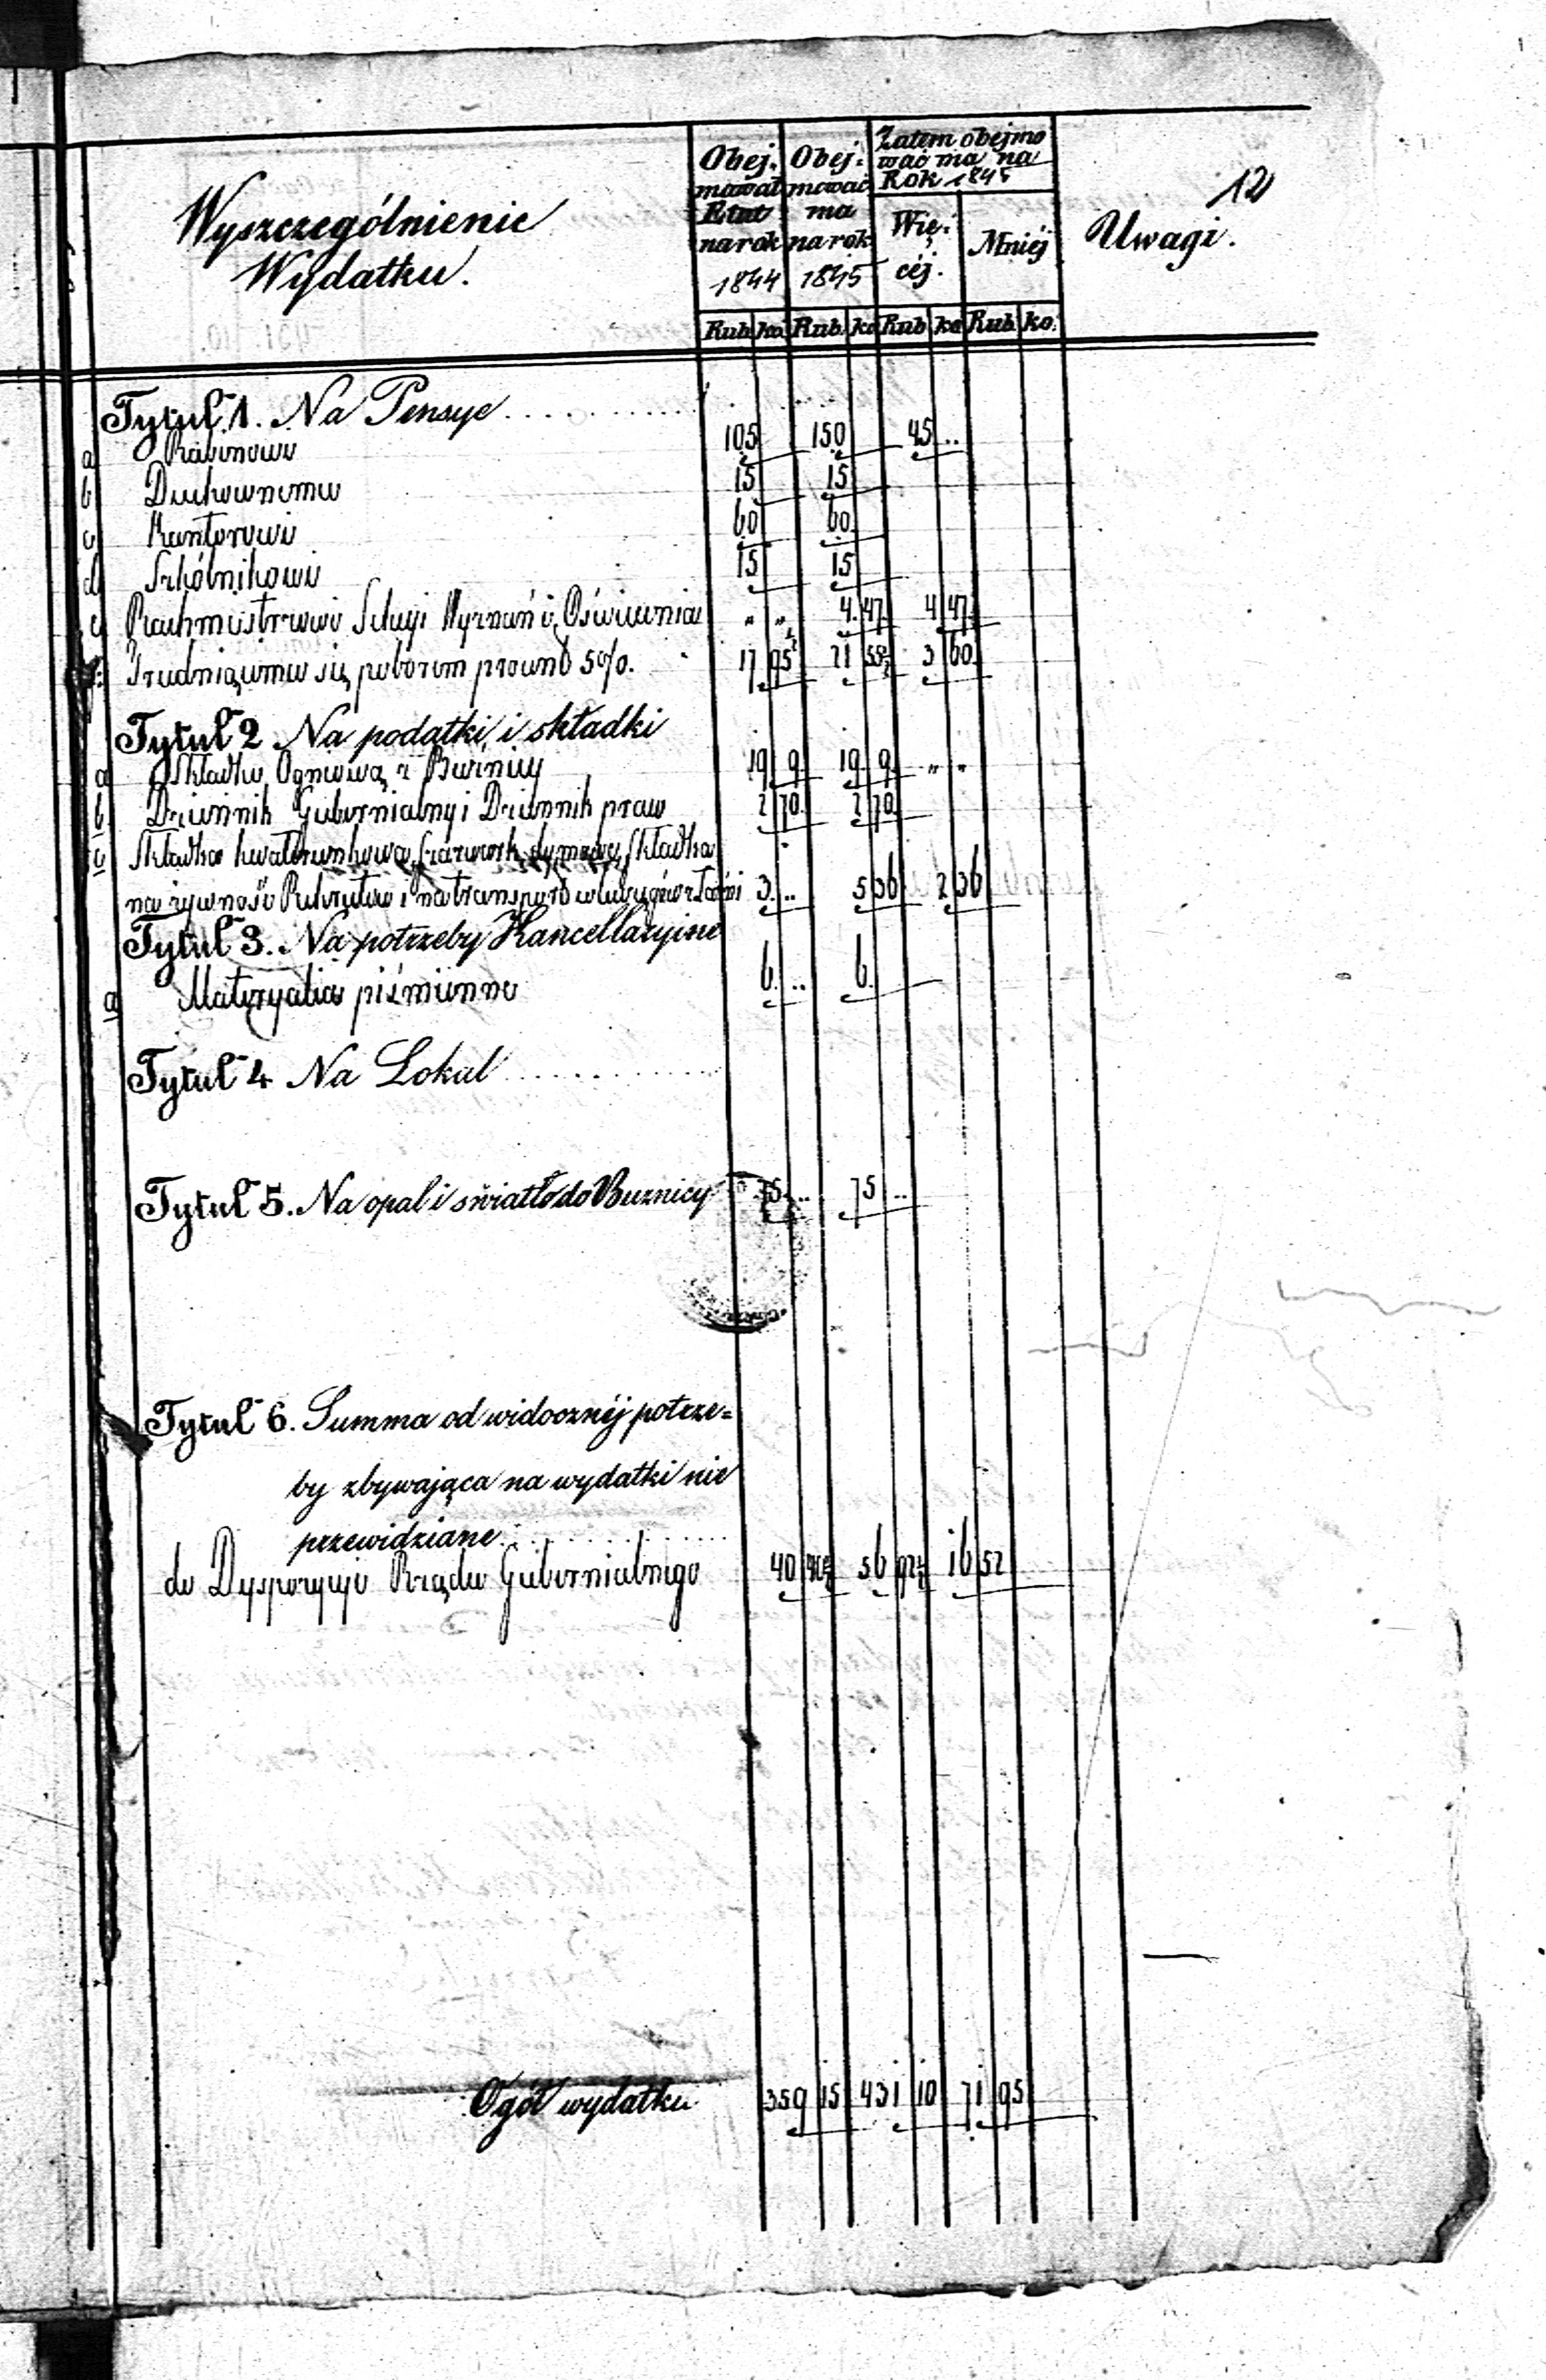 12
Wyszczególnienie
Wydatku.
Obej.
mował
Etat
na rok
1844
Obej-
mować
ma
na rok
1845
Zatem obejmo
wać ma na
Rok 1845
Wię-
céj.
Mniéj
Uwagi.
Rub. ko. Rub. ko Rub ko Rub ko.
Tytuł 1. Na Pensye
a Rabinowi 105 150 45 ..
b Duchownemu 15 15
c Kantorowi 60 60.
d Szkólnikowi 15 15
e Rachmistrzowi Sekcyi Wyznań i Oświecenia " " 4. 47. 4 47.
f. Trudniącemu się poborem procent 5%. 17 95½ 21 55½ 3 60.
Tytuł 2. Na podatki i składki
a Składka Ogniowa z Bużnicy 19 9. 19. 9. " "
b Dziennik Gubernialny i Dziennik praw 2 70. 2 70
c Składka kwaterunkowa, szarwark, dymowe, Składka
na żywność Rekrutów i na transport włóczęgów z Łodzi 3. .. 5 36 2 36
Tytuł 3. Na potrzeby Kancellaryine
a Materyalia piśmienne 6. .. 6.
Tytuł 4 Na Lokal
Tytuł 5. Na opał i światło do Buznicy 75. .. 75 ..
Tytuł 6. Summa od widocznéj potrze=
by zbywająca na wydatki nie
przewidziane
do Dyspozycyi Rządu Gubernialnego 40 40½ 56 92½ 16 52
Ogół wydatku 359 15 431 10 71 95